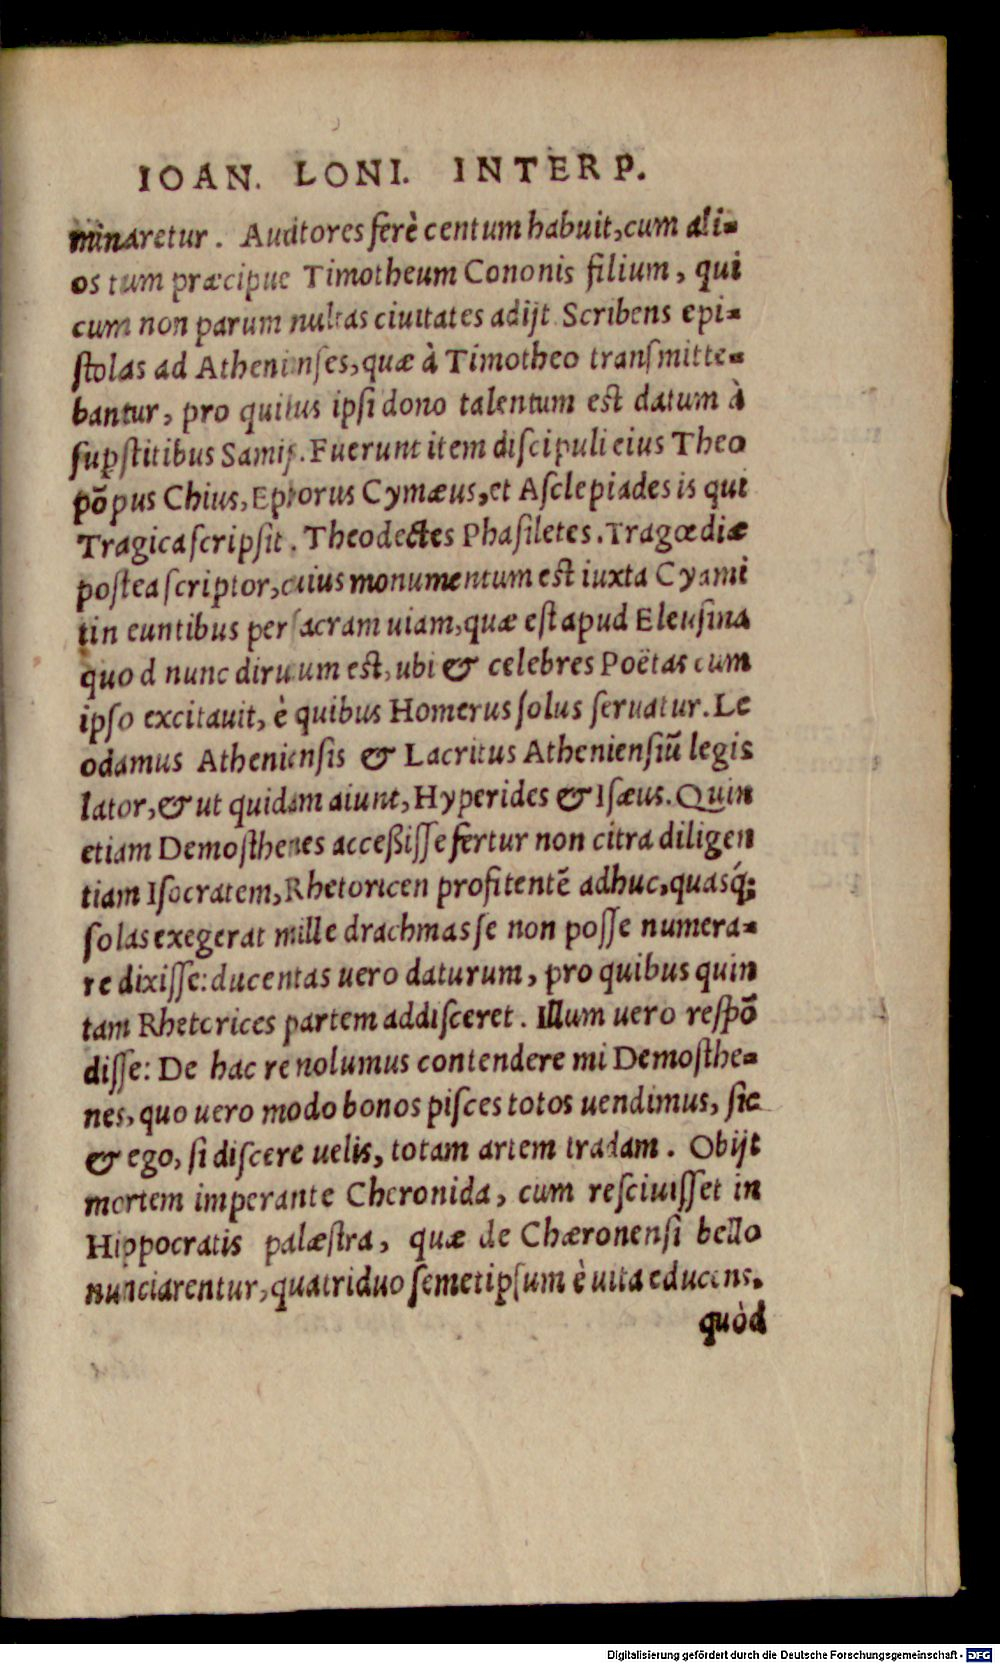 IOAN. LONI. INTERP.
minaretur. Auditores ferè centum habuit, cum ali-
os tum præcipue Timotheum Cononis filium, qui
cum non parum multas ciuitates adijt Scribens epi-
stolas ad Athenienses, quæ à Timotheo transmitte-
bantur, pro quibus ipsi dono talentum est datum à
sup̱stitibus Samijs. Fuerunt item discipuli eius Theo
põpus Chius, Ephorus Cymæus, et Asclepiades is qui
Tragica scripsit. Theodectes Phasiletes. Tragœdiæ
postea scriptor, cuius monumentum est iuxta Cyami
tin euntibus per sacram uiam, quæ est apud Eleusina
quod nunc dirutum est, ubi & celebres Poëtas cum
ipso excitauit, è quibus Homerus solus seruatur. Le
odamus Atheniensis & Lacritus Atheniensiũ legis
lator, & ut quidam aiunt, Hyperides & Isæus. Quin
etiam Demosthenes accessisse fertur non citra diligen
tiam Isocratem, Rhetoricen profitentẽ adhuc, quasq́;
solas exegerat mille drachmas se non posse numera-
re dixisse: ducentas uero daturum, pro quibus quin
tam Rhetorices partem addisceret. Illum uero respõ
disse: De hac re nolumus contendere mi Demosthe-
nes, quo uero modo bonos pisces totos uendimus, sic
& ego, si discere uelis, totam artem tradam. Obijt
mortem imperante Cheronida, cum resciuisset in
Hippocratis palæstra, quæ de Chæronensi bello
nunciarentur, quatriduo semetipsum è uita educens.
quòd
Digitalisierung gefördert durch die Deutsche Forschungsgemeinschaft - DFG